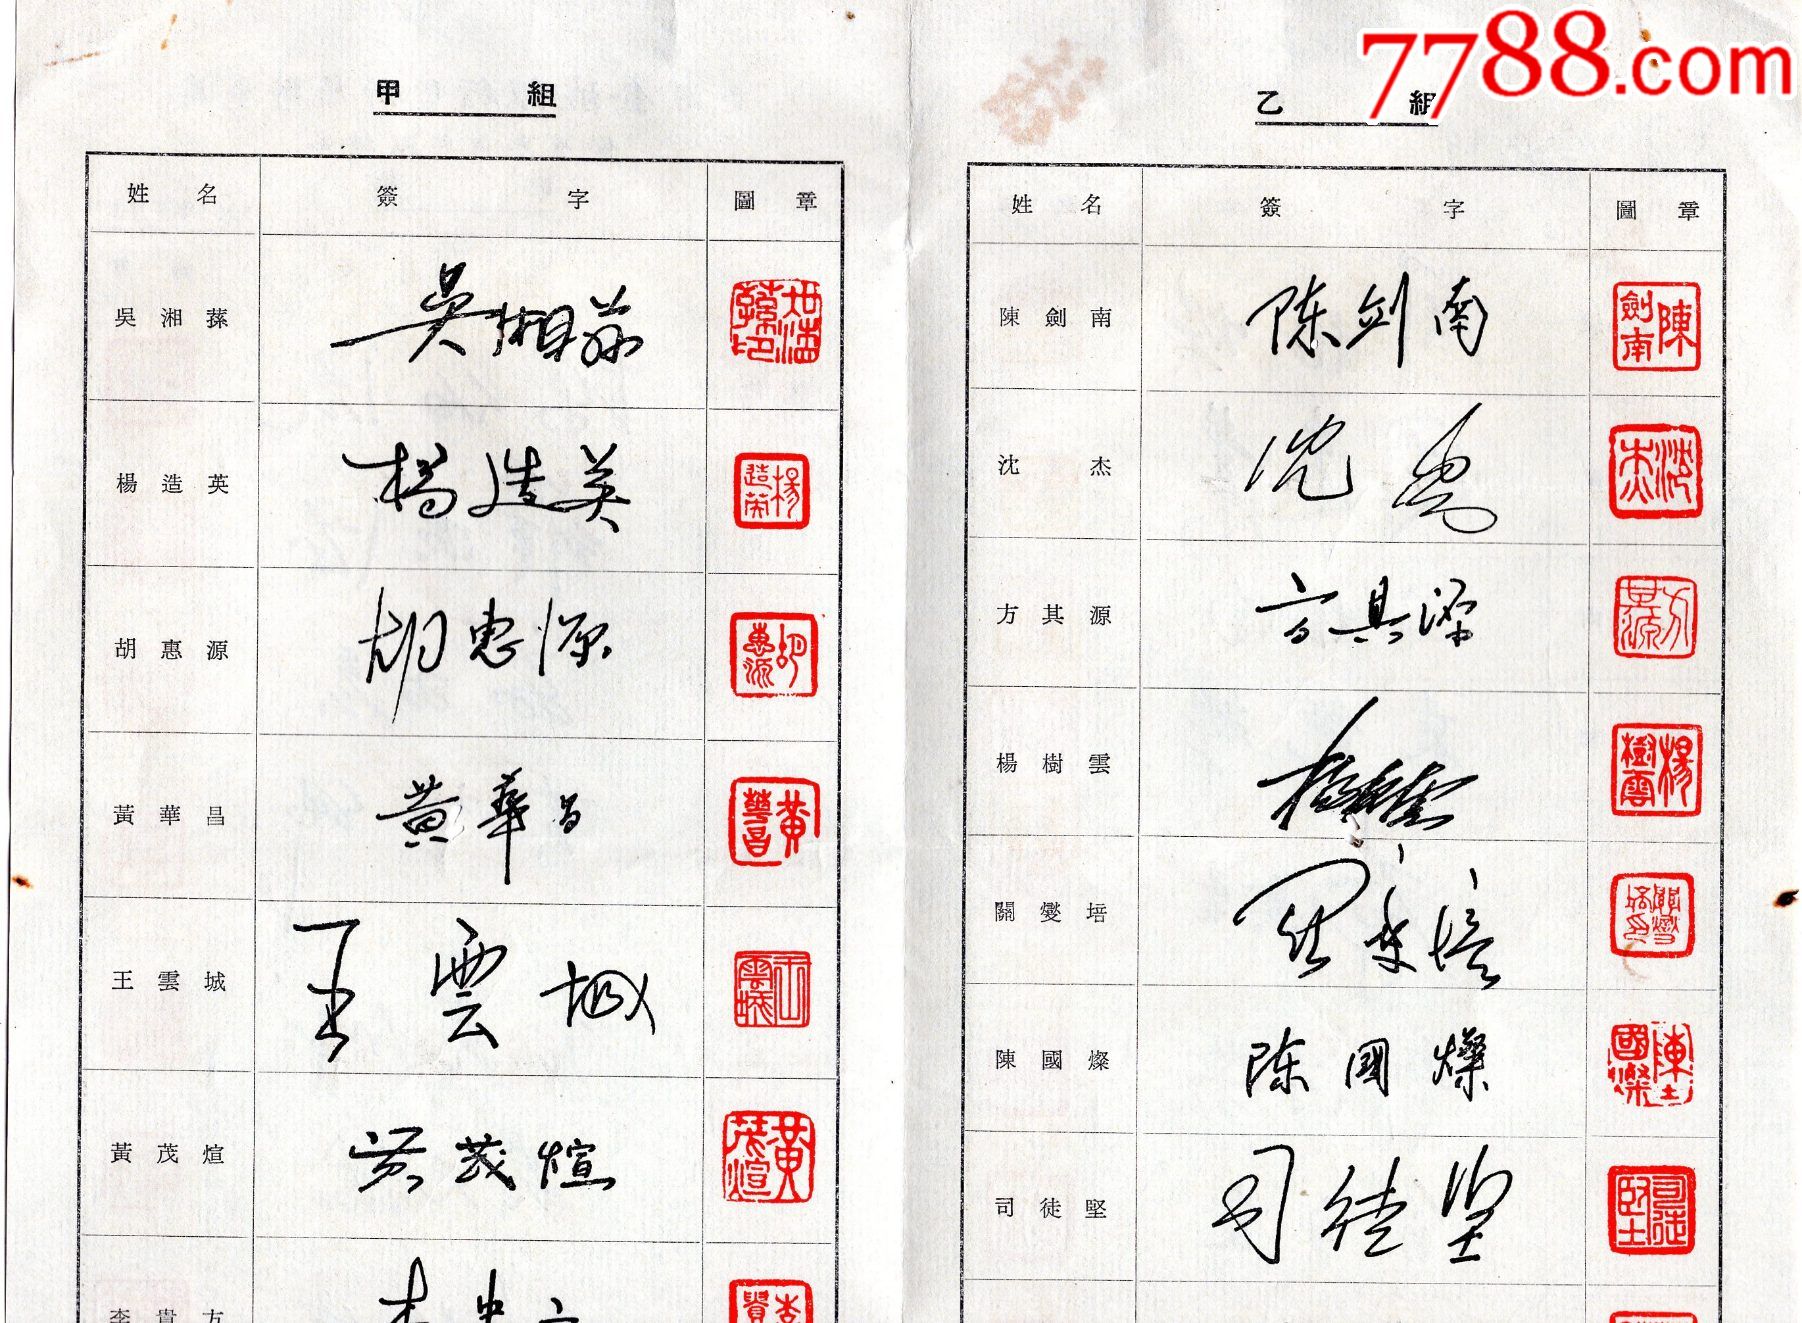 7788.com
甲 組
姓 名 簽 字 圖 章
吳湘蓀 吳湘蓀
楊造英 楊造英 楊造英
胡惠源 胡惠源 胡惠源
黃華昌 黄華昌 黃華昌
王雲城 王雲城 王雲城
黃茂煊 黄茂煊 黃茂煊
李貴方
乙 組
姓 名 簽 字 圖 章
陳劍南 陈剑南 陳劍南
沈杰 沈杰 沈杰
方其源 方其源 方其源
楊樹雲 楊樹雲 楊樹雲
關燮培 関燮培 關燮培印
陳國燦 陈國燦 陳國燦
司徒堅 司徒坚 司徒堅